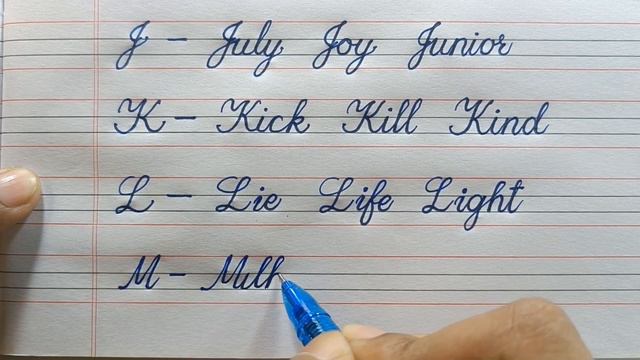 J - July Joy Junior
K - Kick Kill Kind
L - Lie Life Light
M - Milk